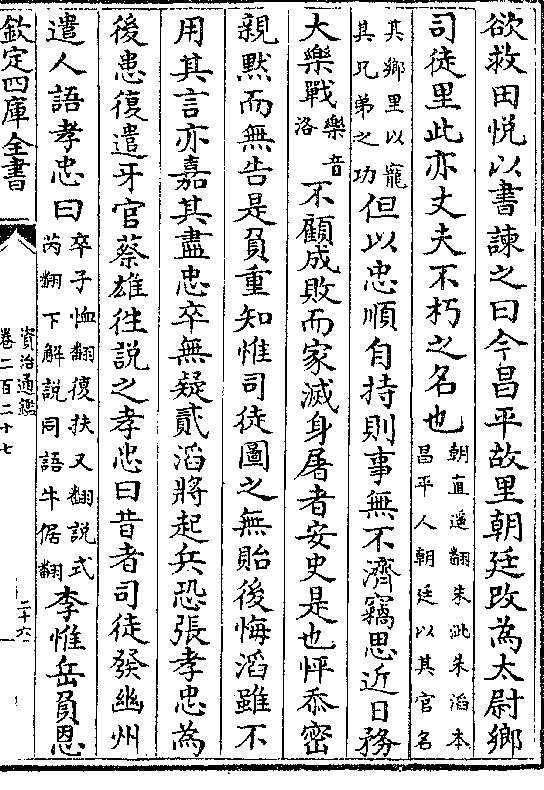 欲救田悅以書諫之曰今昌平故里朝廷改為太尉鄉
司徒里此亦丈夫不朽之名也朝直遥翻朱泚朱滔本昌平人朝廷以其官名
其鄉里以寵其兄弟之功但以忠順自持則事無不濟竊思近日務
大樂戰樂音洛不顧成敗而家滅身屠者安史是也怦忝密
親黙而無告是負重知惟司徒圖之無貽後悔滔雖不
用其言亦嘉其盡忠卒無疑貳滔將起兵恐張孝忠為
後患復遣牙官蔡雄徃説之孝忠曰昔者司徒發幽州
遣人語孝忠曰卒子恤翻復扶又翻説式芮翻下解説同語牛倨翻李惟岳負恩
欽定四庫全書
資治通鑑
卷二百二十七
二十六